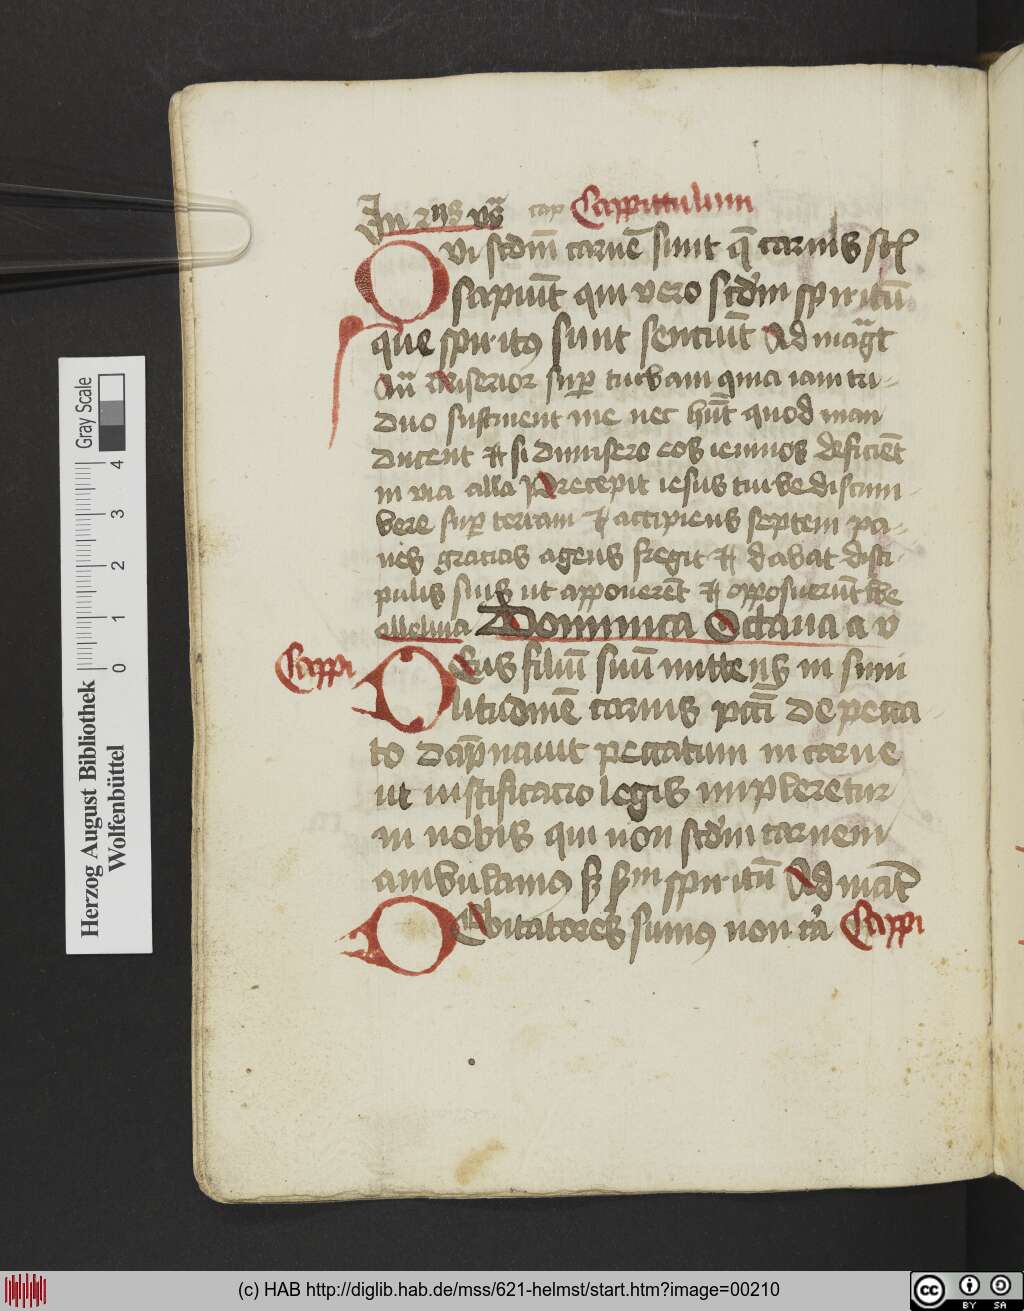 In 2ijs vs̃ cap Cappittulum
Qvi scdm̄ carnē sunt q̄ carnis st̄
sapiūt qui vero scdm spiritū
que spiritꝯ sunt sentiūt Ad mag̅t
Añ Miserior sup̄ turbam quia iam tri-
duo sustinent me nec hn̄t quod man
ducent et si dimisero eos ieiunos deficiēt
in via alla Precepit iesus turbe discum
bere sup̄ terram et accipiens septem pa-
nes gracias agens fregit et dabat disci
pulis suis ut apponerēt et apposuerūt tbe
alleluia Dominica Octaua a v
Cappi Deus filiū suū mittens in simi
litudinē carnis pctī de pecca
to dāpnauit peccatum in carne
ut iustificacio legis impleretur
in nobis qui non scdm carnem
ambulamꝯ sꝫ sm̄ spiritū Ad mat̄
Debitatores sumꝯ non cāi Cappi
Herzog August Bibliothek
Wolfenbüttel
Gray Scale
0 1 2 3 4
(c) HAB http://diglib.hab.de/mss/621-helmst/start.htm?image=00210
cc BY SA